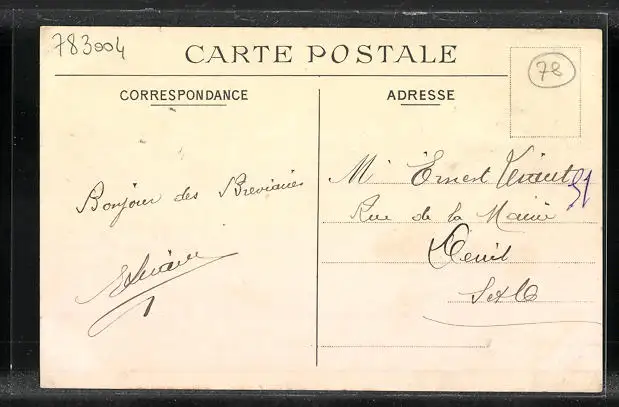 783004
CARTE POSTALE
78
CORRESPONDANCE
ADRESSE
Bonjour des Breviaires
Mr Ernest
Rue de la Mairie
Deuil
S et O